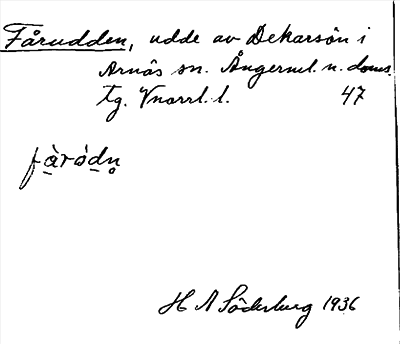 Fårudden, udde av Dekarsön i
Arnäs sn. Ångerml. n. doms.
tg. Vnorrl. l. 47
fàródn̥
H A Söderberg 1936